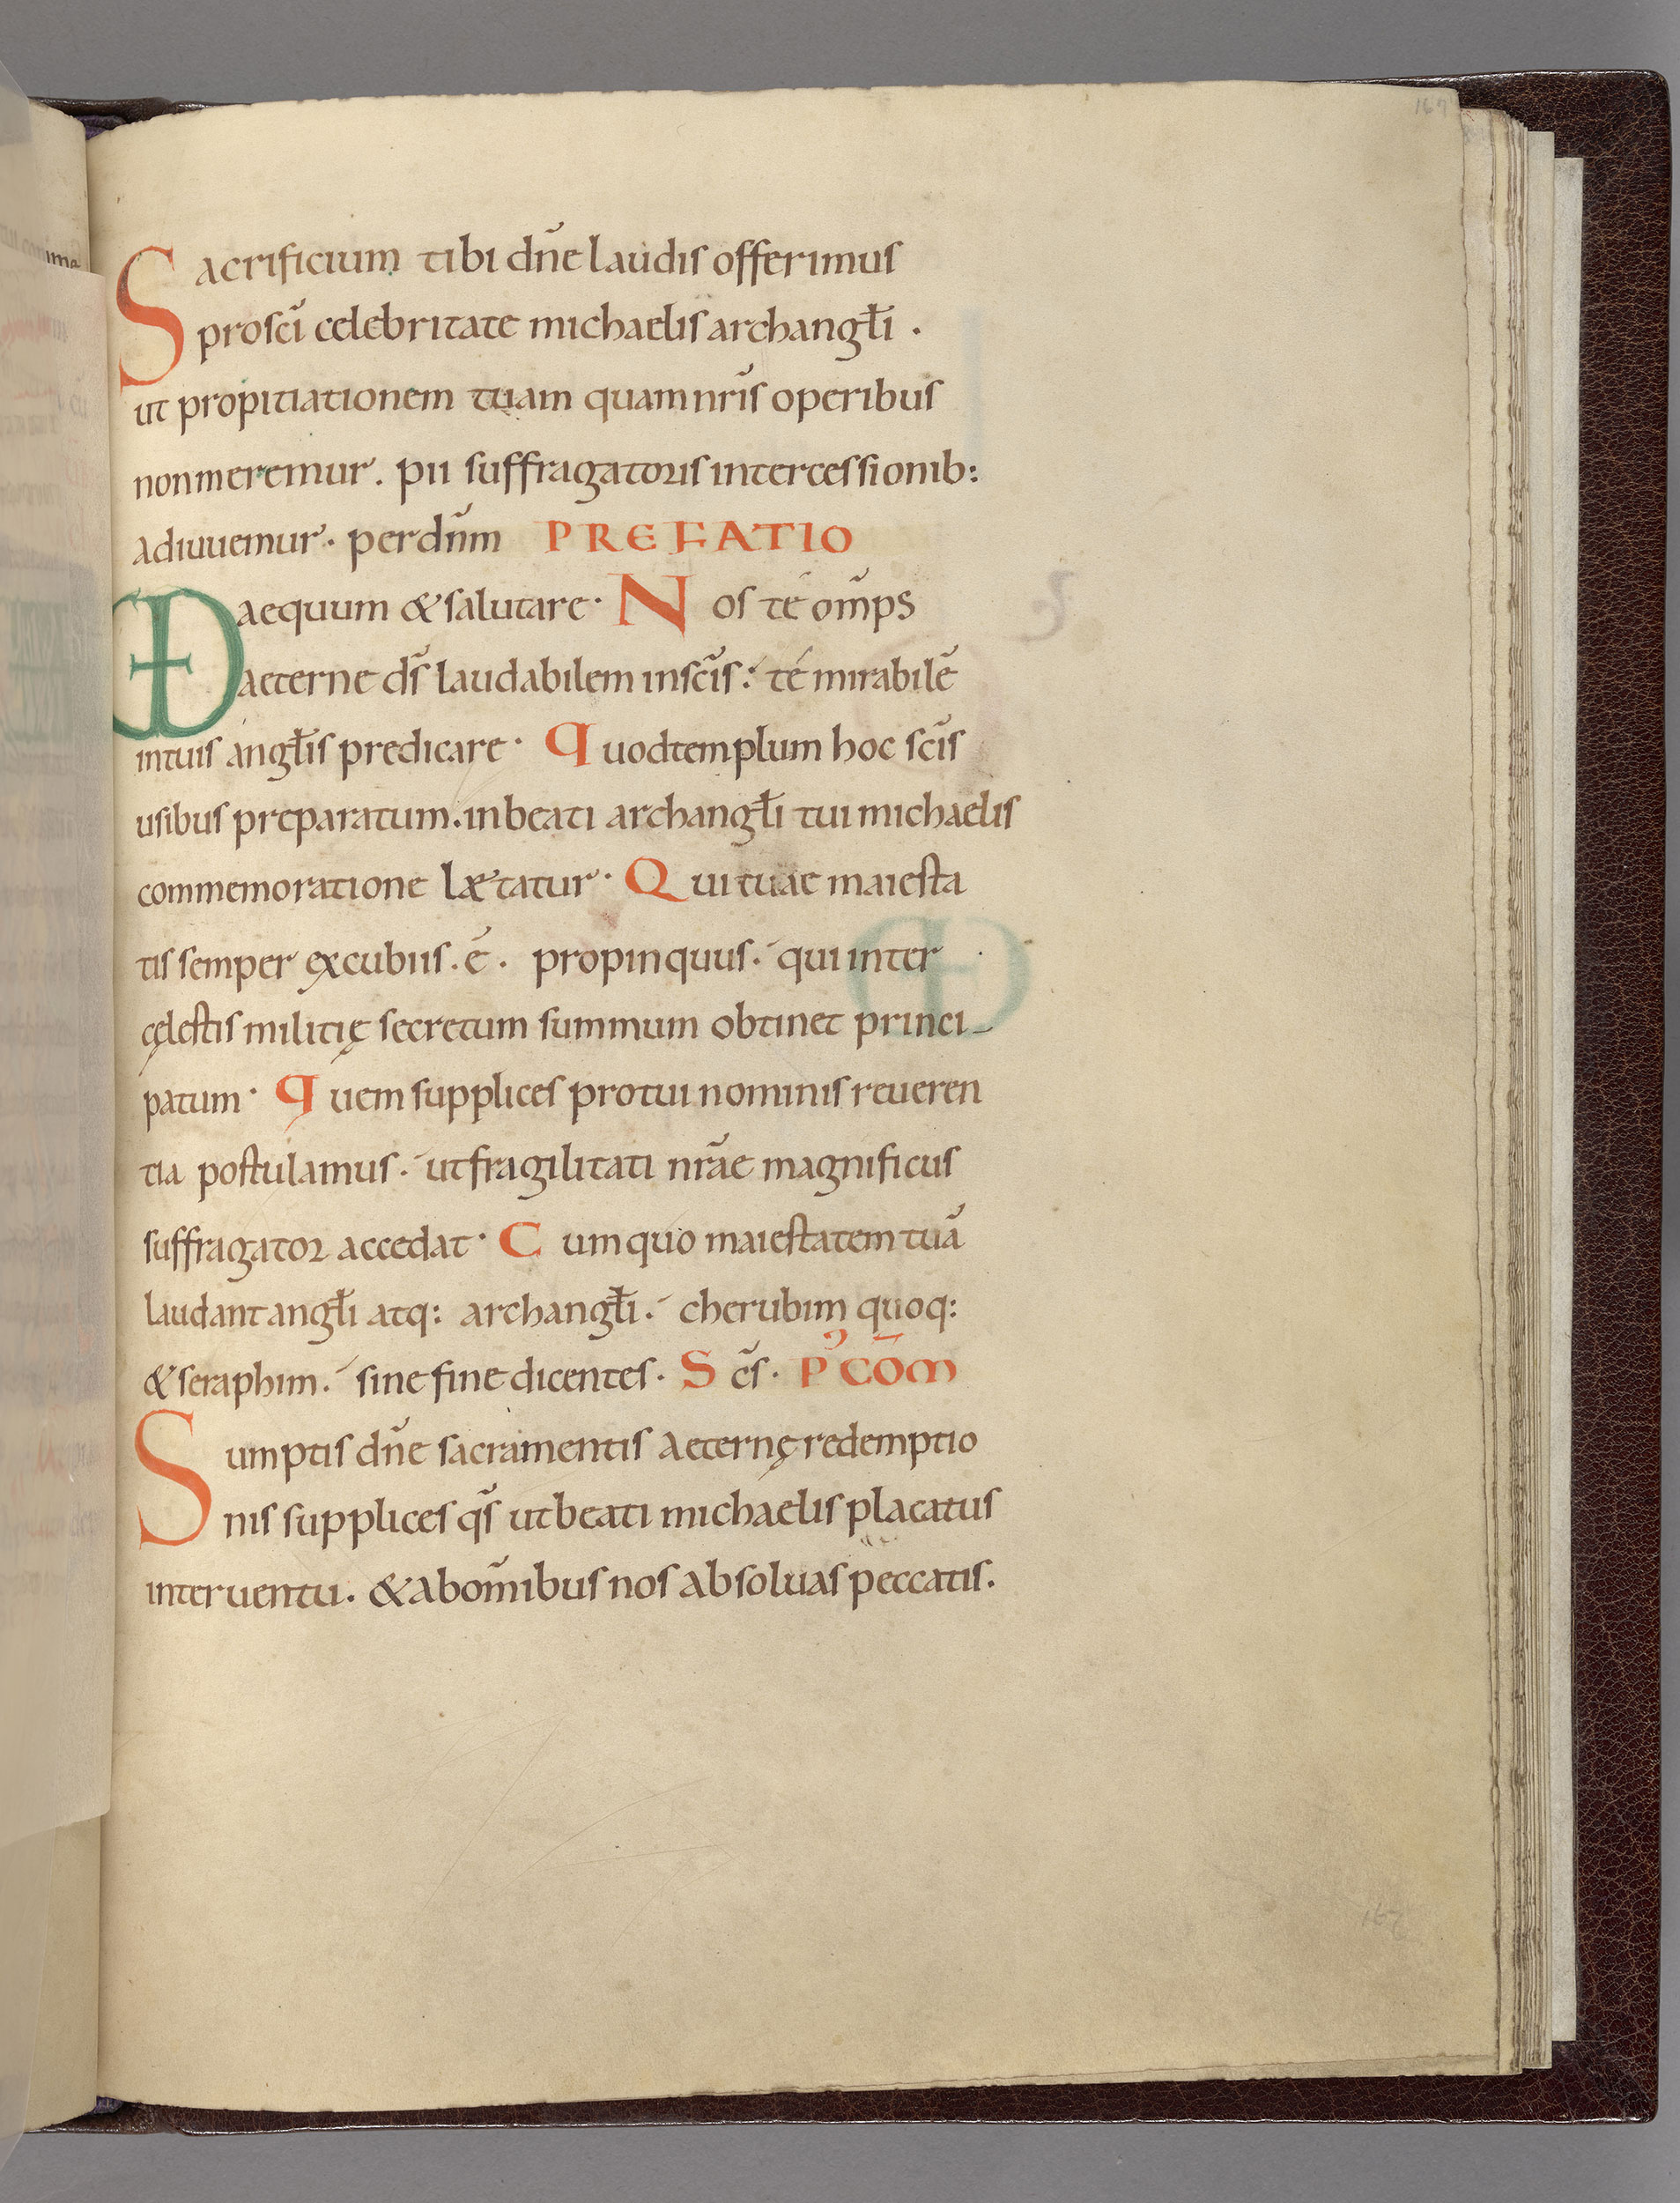 167
Sacrificium tibi dn̄e laudis offerimus
pro scī celebritate michaelis archangłi .
ut propitiationem tuam quam nr̄is operibus
non meremur . pii suffragatoris intercessionib:
adiuuemur · per dn̄m PREFATIO
VD aequum & salutare · Nos té om̄ps
aeterne ds̄ laudabilem in sc̄is : té mirabilē
in tuis angłis predicare · Quod templum hoc sc̄is
usibus preparatum . in beati archangłi tui michaelis
commemoratione lætatur · Qui tuae maiesta
tis semper excubiis . ē . propinquus . qui inter
cęlestis militię secretum summum obtinet princi-
patum · Quem supplices pro tui nominis reueren
tia postulamus . ut fragilitati nr̄ae magnificus
suffragator accedat · Cum quo maiestatem tuā
laudant angłi atq: archangłi . cherubim quoq:
& seraphim . sine fine dicentes . Sc̄s . P' COM̄
Sumptis dn̄e sacramentis aeternę redemptio
nis supplices qs̄ ut beati michaelis placatus
interuentu . & ab om̄ibus nos absoluas peccatis .
167